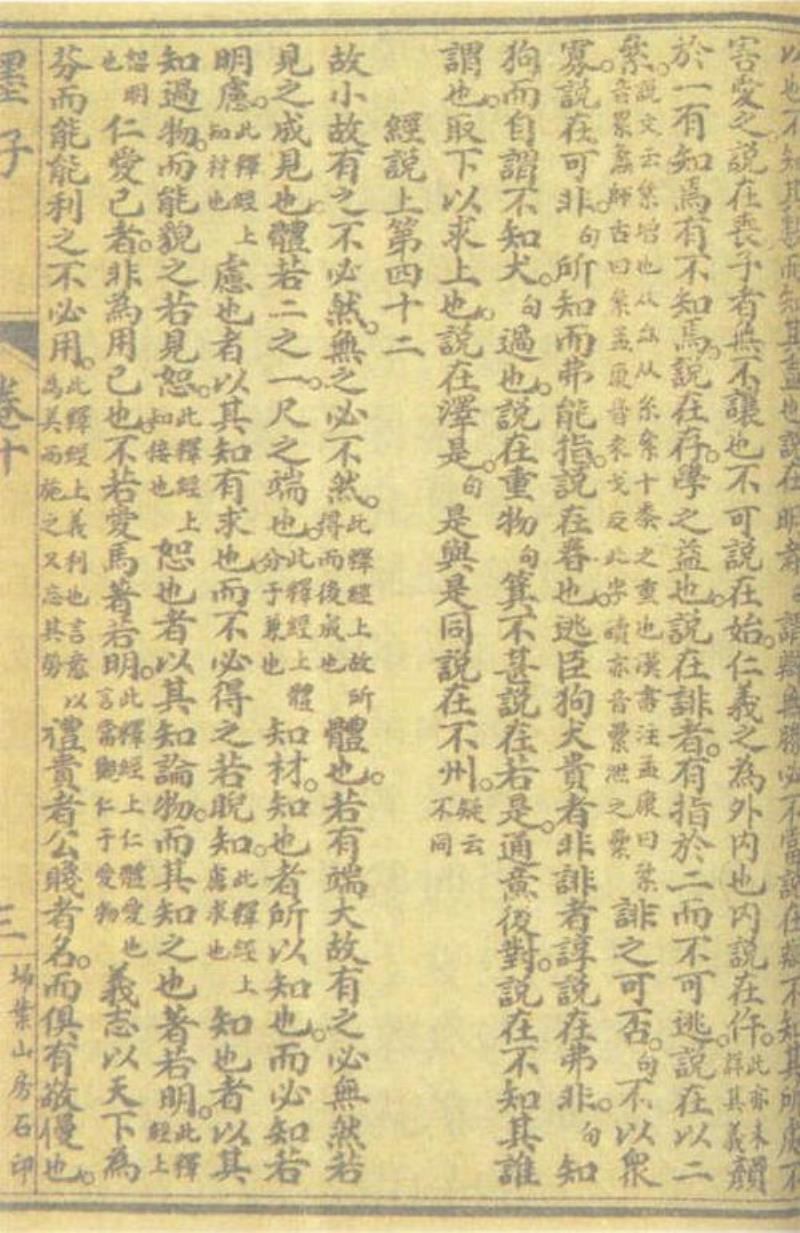 以也不知其數而知其盡也說在明者
害愛之說在喪子者無不讓也不可說在始仁義之為外內也內說在仵此亦未詳其義顏
於一有知焉有不知焉說在存學之益也說在誹者有指於二而不可逃說在以二
絫說文云絫增也从厽从糸絫十黍之重也漢書注孟康曰絫音累蠡師古曰絫孟康音來戈反此字讀亦音纍紲之纍誹之可否句不以眾
寡說在可非句所知而弗能指說在春也逃臣狗犬貴者非誹者諄說在弗非句知
狗而自謂不知犬句過也說在重物句箕不甚說在若是通意後對說在不知其誰
謂也取下以求上也說在澤是句是與是同說在不州疑云不同
經說上第四十二
故小故有之不必然無之必不然此釋經上故所得而後成也體也若有端大故有之必無然若
見之成見也體若二之一尺之端也此釋經上體分于兼也知材知也者所以知也而必知若
明慮此釋經上知材也慮也者以其知有求也而不必得之若睨知此釋經上慮求也知也者以其
知過物而能貌之若見恕此釋經上知接也恕也者以其知論物而其知之也著若明此釋經上
恕明也仁愛己者非為用己也不若愛馬著若明此釋經上仁體愛也言當觀仁于愛物義志以天下為
芬而能能利之不必用此釋經上義利也言意以為美而施之又忘其勞禮貴者公賤者名而俱有敬僈也
墨子
卷十
三
掃葉山房石印